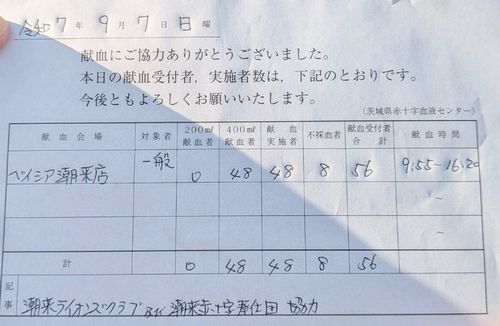 令和7年9月7日日曜
献血にご協力ありがとうございました。
本日の献血受付者，実施者数は，下記のとおりです。
今後ともよろしくお願いいたします。
（茨城県赤十字血液センター）
献血会場 対象者 200㎖献血者 400㎖献血者 献血実施者 不採血者 献血受付者合計 献血時間
ベイシア潮来店 一般 0 48 48 8 56 9:55〜16:20
〜
〜
計 0 48 48 8 56
記事 潮来ライオンズクラブ及び潮来赤十字奉仕団 協力